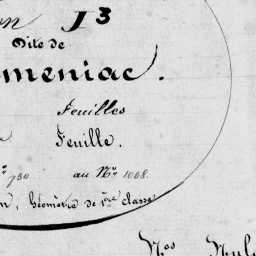 on J3
Dite de
meniac.
Feuilles
Feuille.
730 au No 1068.
n, Géomètre de 1ère classe
Nos